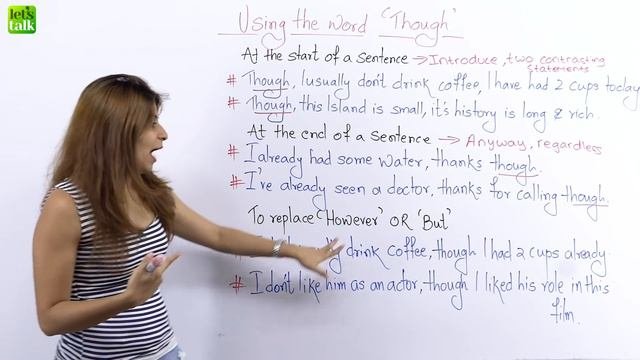 let's
talk
Using the word 'Though'
At the start of a sentence → Introduce, two contrasting
statements
# Though, I usually don't drink coffee, I have had 2 cups today
# Though, this Island is small, it's history is long & rich.
At the end of a sentence → Anyway, regardless
# I already had some water, thanks though.
# I've already seen a doctor, thanks for calling though.
To replace 'However' OR 'But'
drink coffee, though I had 2 cups already
# I don't like him as an actor, though I liked his role in this
film.